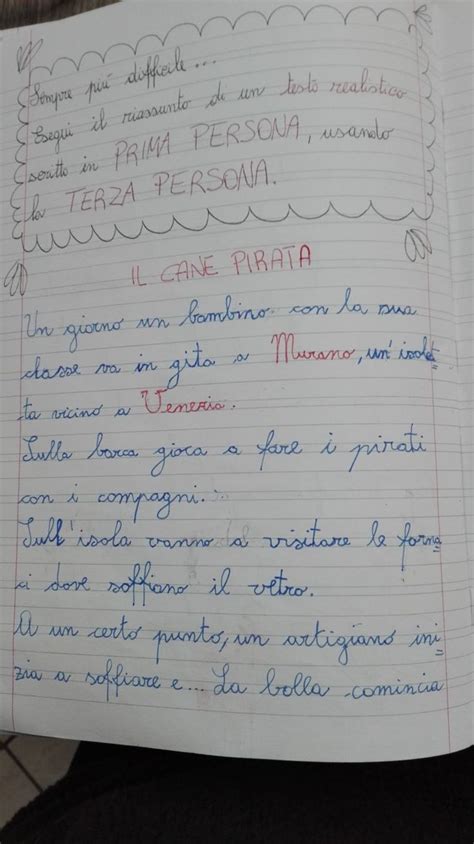 Sempre più difficile...
Esegui il riassunto di un testo realistico
scritto in PRIMA PERSONA, usando
la TERZA PERSONA.
IL CANE PIRATA
Un giorno un bambino con la sua
classe va in gita a Murano, un'isolet=
ta vicino a Venezia.
Sulla barca gioca a fare i pirati
con i compagni.
Sull'isola vanno a visitare le forna=
ci dove soffiano il vetro.
A un certo punto, un artigiano ini=
zia a soffiare e... La bolla comincia